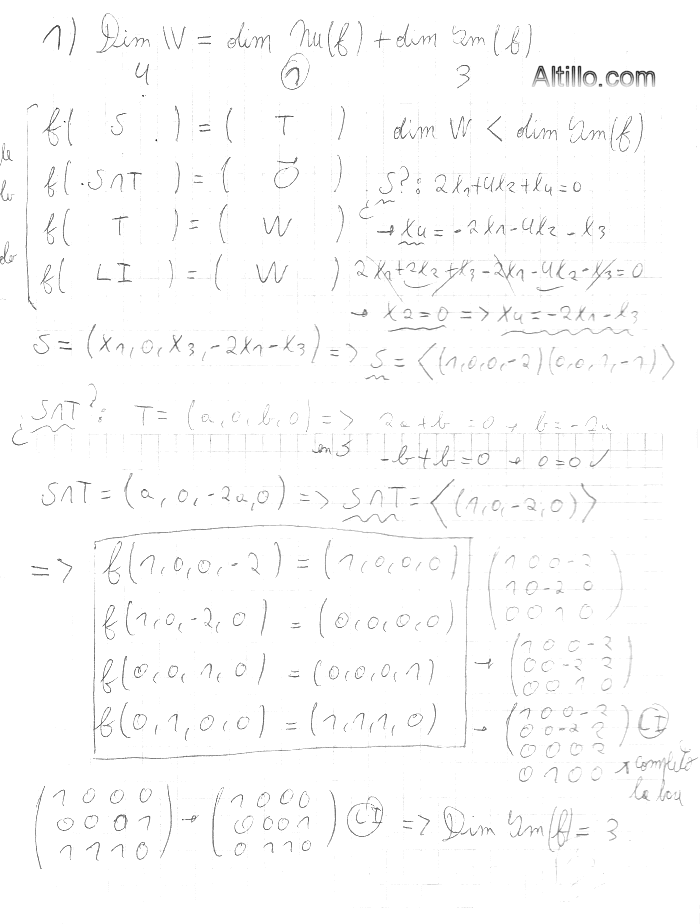 1) Dim W = dim Nu(f) + dim Im(f)
4 1 3
Altillo.com
f( S ) = ( T ) dim W < dim Im(f)
f( S∩T ) = ( 0⃗ ) ¿S?: 2x1+4x2+x4=0
f( T ) = ( W ) → x4 = -2x1-4x2-x3
f( LI ) = ( W ) 2x1+2x2+x3-2x1-4x2-x3=0
→ x2=0 => x4=-2x1-x3
S = (x1,0,x3,-2x1-x3) => S = <(1,0,0,-2)(0,0,1,-1)>
¿S∩T?: T = (a,0,b,0) => 2a+b=0 → b=-2a
en S -b+b=0 → 0=0 ✓
S∩T = (a,0,-2a,0) => S∩T = <(1,0,-2,0)>
=> f(1,0,0,-2) = (1,0,0,0)
f(1,0,-2,0) = (0,0,0,0)
f(0,0,1,0) = (0,0,0,1)
f(0,1,0,0) = (1,1,1,0)
(1 0 0 -2
1 0 -2 0
0 0 1 0)
→ (1 0 0 -2
0 0 -2 2
0 0 1 0)
→ (1 0 0 -2
0 0 -2 2
0 0 0 2
0 1 0 0) LI
completo
la base
(1 0 0 0
0 0 0 1
1 1 1 0) → (1 0 0 0
0 0 0 1
0 1 1 0) LI => Dim Im(f) = 3